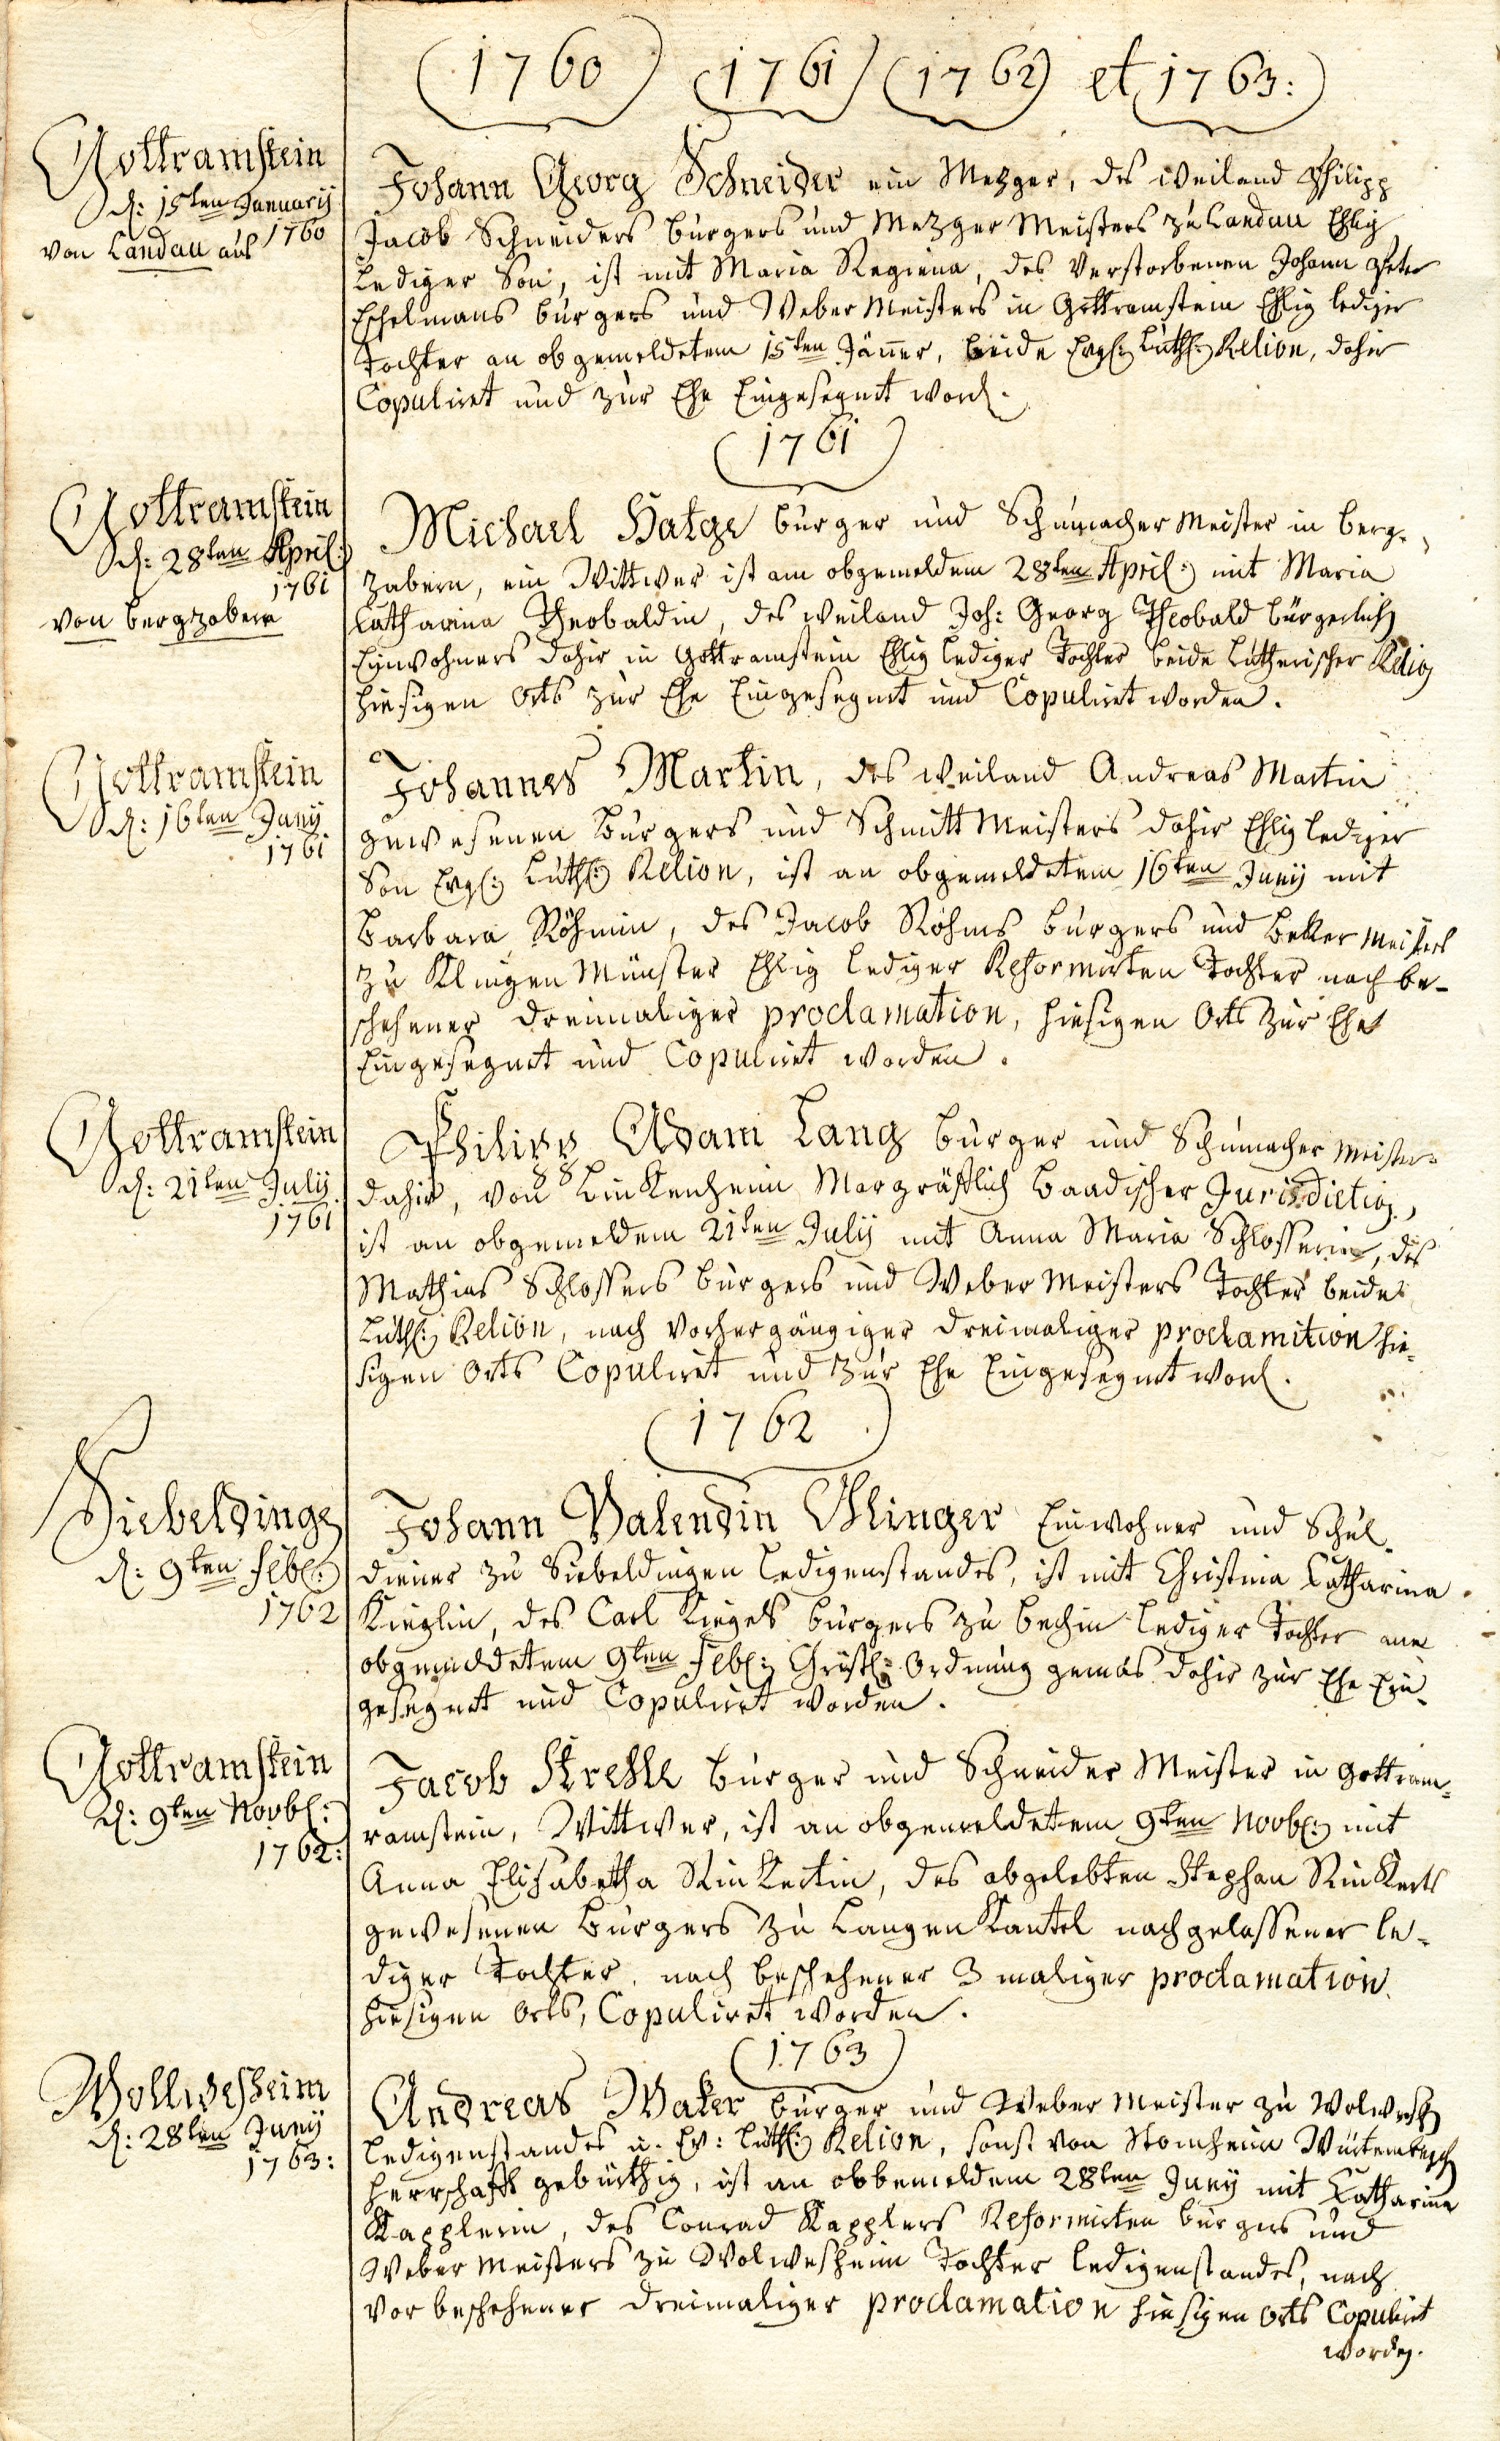 1760 1761 1762 et 1763:
Gottramstein
d: 15ten Januarij
1760
von Landau aus
Johann Georg Schneider ein Metzger, des weiland Philipp
Jacob Schneiders burgers und Metzger Meisters zu Landau Ehlig
lediger Son, ist mit Maria Regiena, des Verstorbenen Johann Peter
Eschelmans burgers und Weber Meisters in Gottramstein Ehlig lediger
Tochter an obgemeldetem 15ten Jäner, beide Evgl: Luth: Relion, dahir
Copuliret und zur Ehe Eingesegnet word.
1761
Gottramstein
d: 28ten April:
1761
von bergzabern
Michael Hatge burger und Schumacher Meister in berg-
zabern, ein Wittwer ist am obgemeldem 28ten April: mit Maria
Catharina Theobaldin, des weiland Joh: Georg Theobald bürgerlich
Einwohners dahir in Gottramstein Ehlig lediger Tochter beide Lutherischer Relig
hiesigen Orts zur Ehe Eingesegnet und Copuliret worden.
Gottramstein
d: 16ten Junij
1761
Johannes Martin, des weiland Andreas Martin
gewesenen Burgers und Schmitt Meisters dahir Ehlig lediger
Son Evgl: Luth: Relion, ist an obgemeldetem 16ten Junij mit
Barbara Röhmin, des Jacob Röhms burgers und Beker Meisters
zu Klingen Münster Ehlig lediger Reformirten Tochter nach be-
schehener dreimaliger proclamation, hiesigen Orts zur Ehe
Eingesegnet und Copuliret worden.
Gottramstein
d: 21ten Julij
1761
Philipp Adam Lang burger und Schumacher Meister
dahir, von Linkenheim Margräflich Baadischer Jurisdictio,
ist an obgemeldem 21ten Julij mit Anna Maria Schlosserin, des
Mathias Schlossers burgers und Weber Meisters Tochter beide
Luth: Relion, nach vorhergängiger dreimaliger proclamition hie-
sigen Orts Copuliret und zur Ehe Eingesegnet word.
1762
Siebeldinge
d: 9ten Febl:
1762
Johann Valendin Klinger Einwohner und Schul-
diener zu Siebeldingen ledigenstandes, ist mit Christina Catharina
Kieglin, des Carl Kiegels burgers zu lediger Tochter am
obgemeldetem 9ten Febl: Christl: Ordnung gemäs dahir zur Ehe Ein-
gesegnet und Copuliret worden.
Gottramstein
d: 9ten Novbl:
1762:
Jacob Burger und Schneider Meister in Gottram-
ramstein, Wittwer, ist an obgemeldetem 9ten Novbl: mit
Anna Elisabetha Rinkertin, des abgelebten Stephan Rinkerts
gewesenen Burgers zu Langen Kantel nachgelassener le-
diger Tochter, nach beschehener 3 maliger proclamation
hiesigen Orts, Copuliret worden.
1763
Wollmesheim
d: 28ten Junij
1763:
Andreas burger und Weber Meister zu
ledigenstandes u. Ev: Luth: Relion, sonst von
Herrschafft gebürthig, ist an obbemeldem 28ten Junij mit Katharina
Kapplerin, des Conrad Kapplers Reformirten burgers und
Weber Meisters zu Wolmesheim Tochter ledigenstandes, nach
vor beschehener dreimaliger proclamation hiesigen Orts Copuliret
worden.